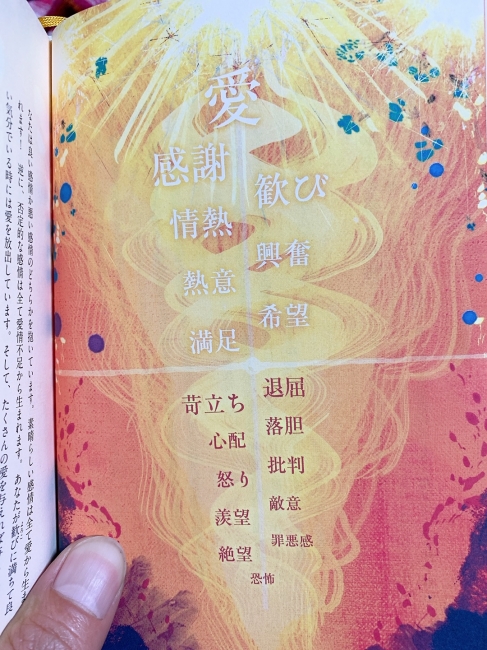 愛
感謝
歓び
情熱
興奮
熱意
希望
満足
退屈
苛立ち
落胆
心配
批判
怒り
敵意
羨望
罪悪感
絶望
恐怖
なたは良い感情か悪い感情のどちらかを抱いています。素晴らしい感情は全て愛から生ま
れます！　逆に、否定的な感情は全て愛情不足から生まれます。あなたが歓びに満ちて良
い気分でいる時には愛を放出しています。そして、たくさんの愛を与えれば